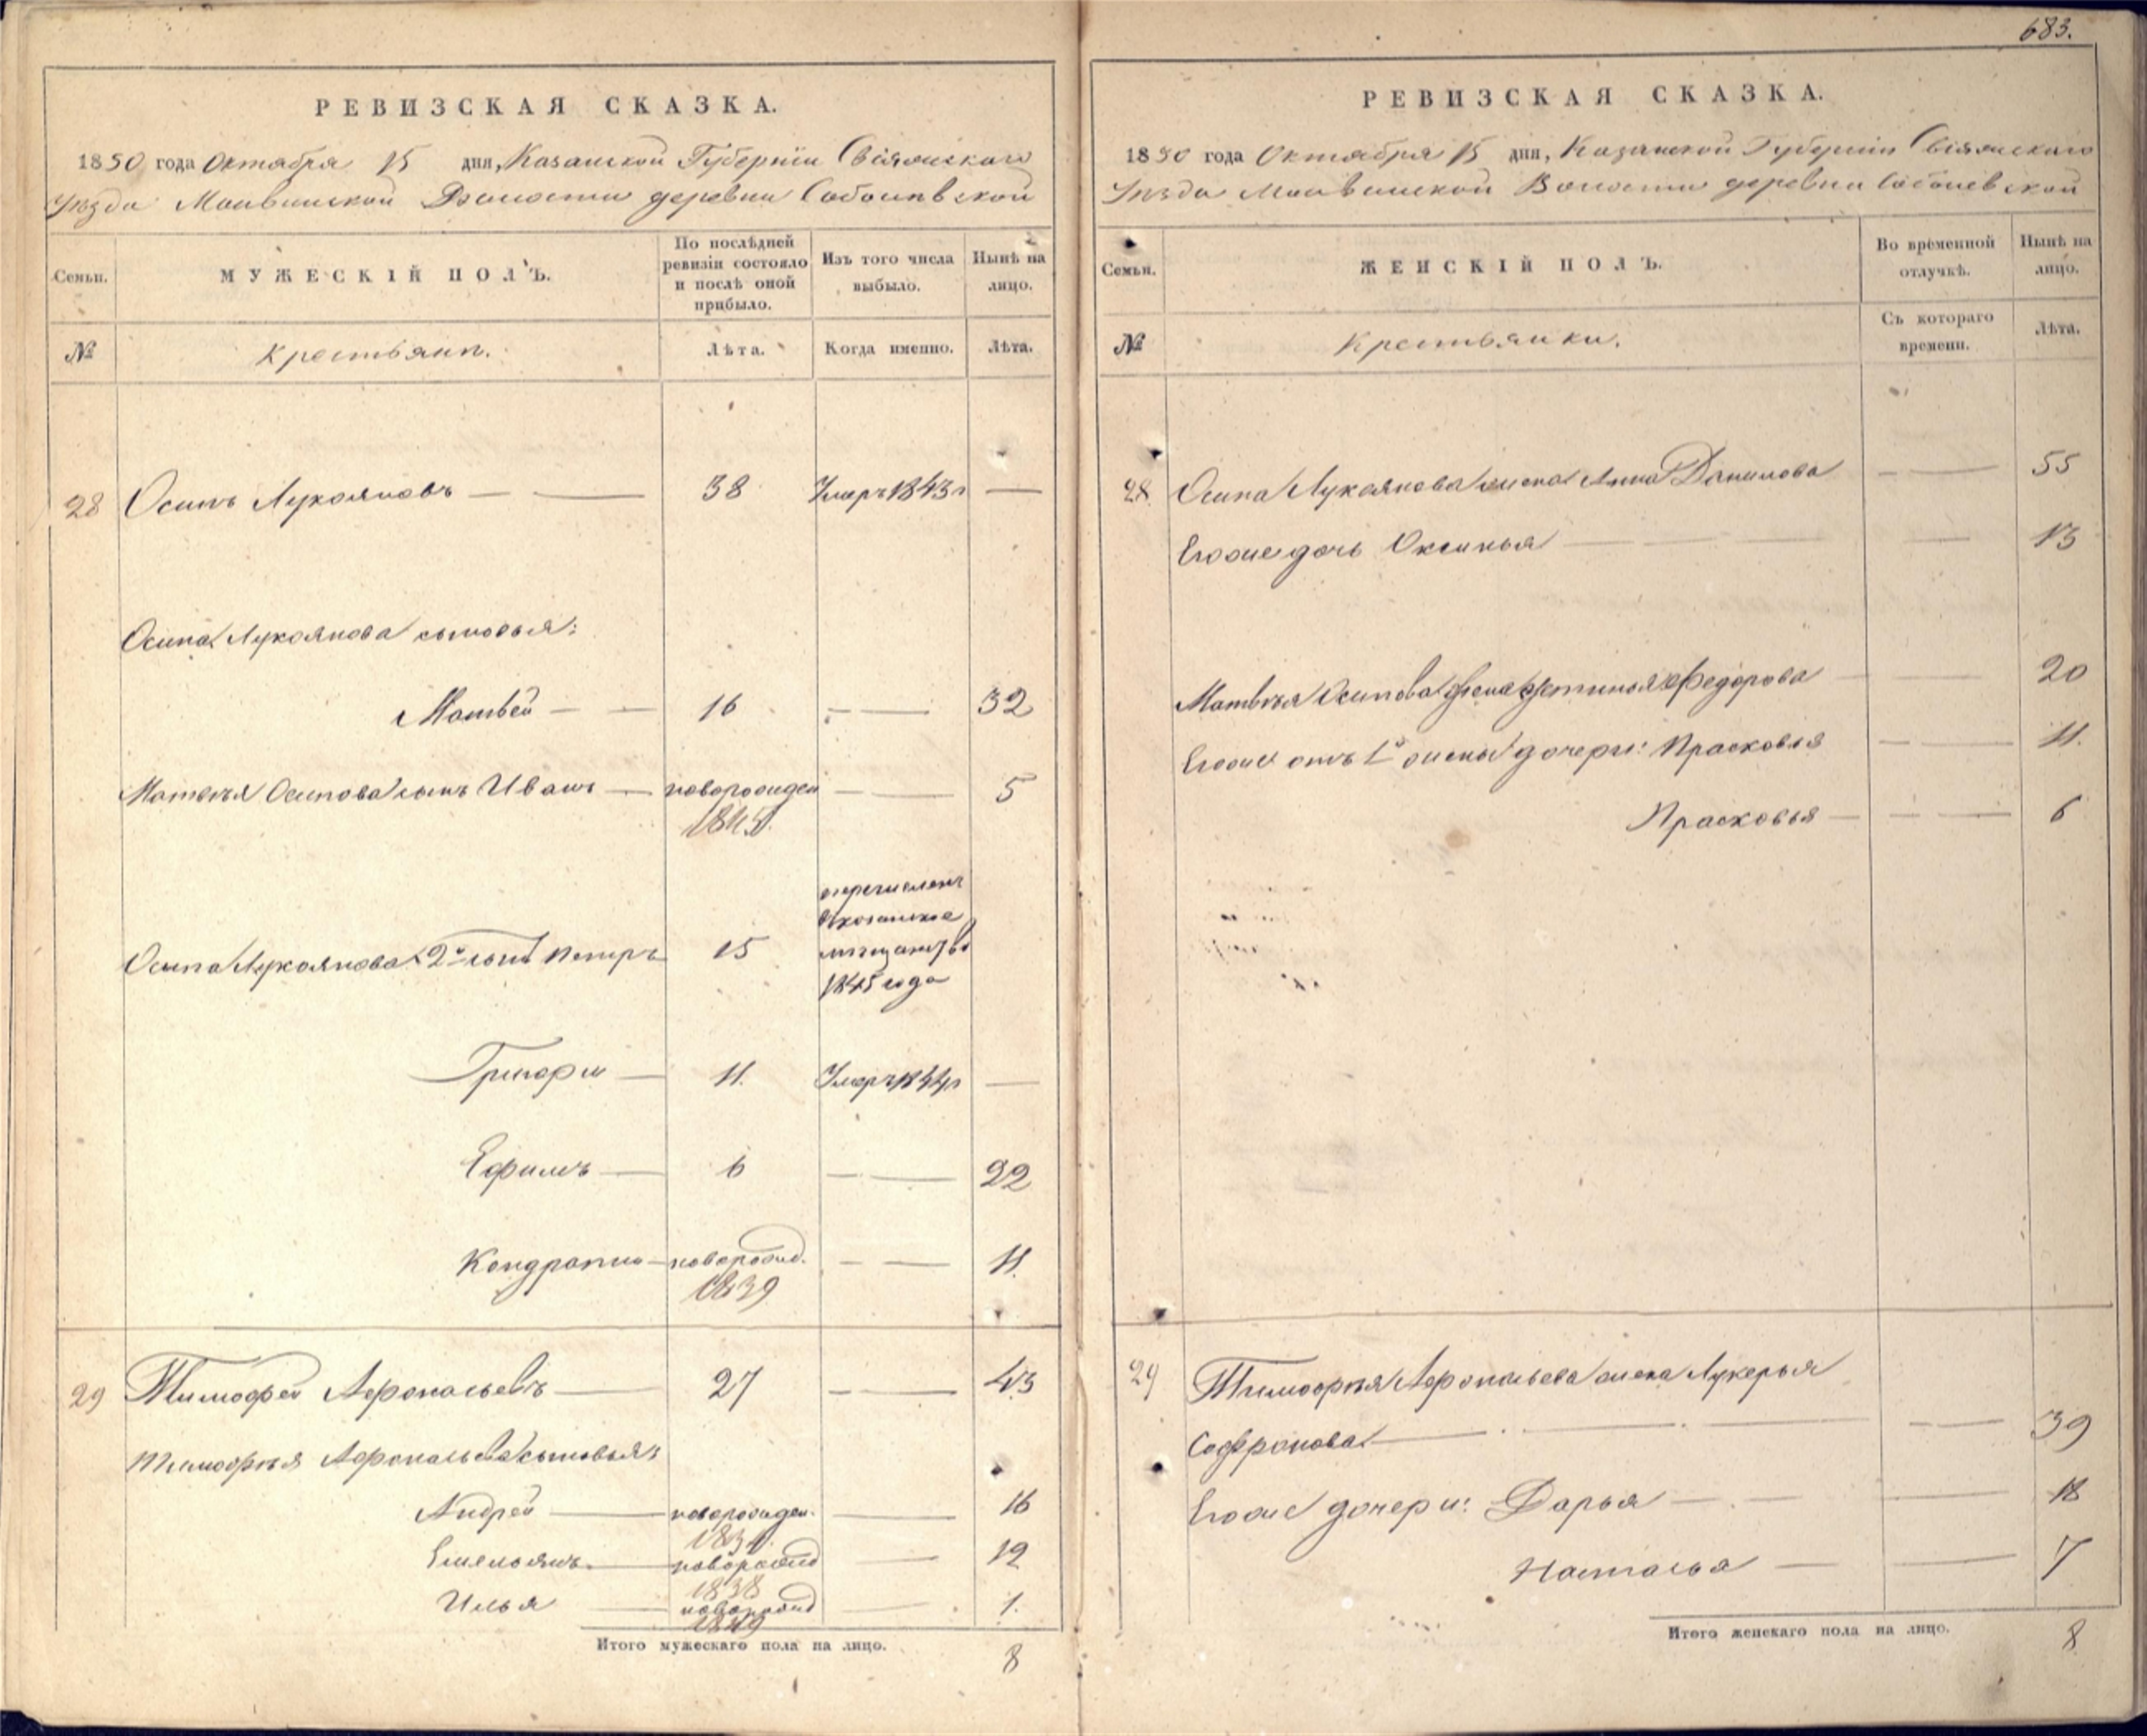 683.
РЕВИЗСКАЯ СКАЗКА.
1850 года Октября 15 дня, Казанской Губерніи Свіяжскаго
Уѣзда Волости деревни
Семьи.
МУЖЕСКІЙ ПОЛЪ.
По послѣдней ревизіи состояло и послѣ оной прибыло.
Изъ того числа выбыло.
Нынѣ на лицо.
№
Крестьяни.
Лѣта.
Когда именно.
Лѣта.
28 Осипъ Лукояновъ — 38 Умеръ 1843 г —
Осипа Лукоянова сыновья:
Матвей — 16 — 32
Матвѣя Осипова сынъ Иванъ — новорожден — 5
1845
Осипа Лукоянова 2й сынъ Петръ 15 перечисленъ
в казанское
мѣщанство
1845 года
Григори — 11. Умеръ 1844 г —
Ефимъ — 6 — 22
Кондрати — новорожд. — 11.
1839
29 Тимофей Афонасьевъ — 27 — 43
Тимофѣя Афонасьева сыновья:
Андрей — новорожден. — 16
1834
Емельянъ — новорожд — 12
1838
Илья — новорожд — 1.
1849
Итого мужескаго пола на лицо. 8
РЕВИЗСКАЯ СКАЗКА.
1850 года Октября 15 дня, Казанской Губерніи Свіяжскаго
Уѣзда Волости деревни
Семьи.
ЖЕНСКІЙ ПОЛЪ.
Во временной отлучкѣ.
Нынѣ на лицо.
№
Крестьянки.
Съ котораго времени.
Лѣта.
28 Осипа Лукоянова жена Анна Данилова — 55
Егоже дочь Оксинья — 13
Матвѣя Осипова жена Устинья Федорова — 20
Егоже отъ 1й жены дочери: Прасковья — 11.
Прасковья — 6
29 Тимофѣя Афонасьева жена Лукерья
Софронова — 39
Егоже дочери: Дарья — 18
Настасья — 7
Итого женскаго пола на лицо. 8